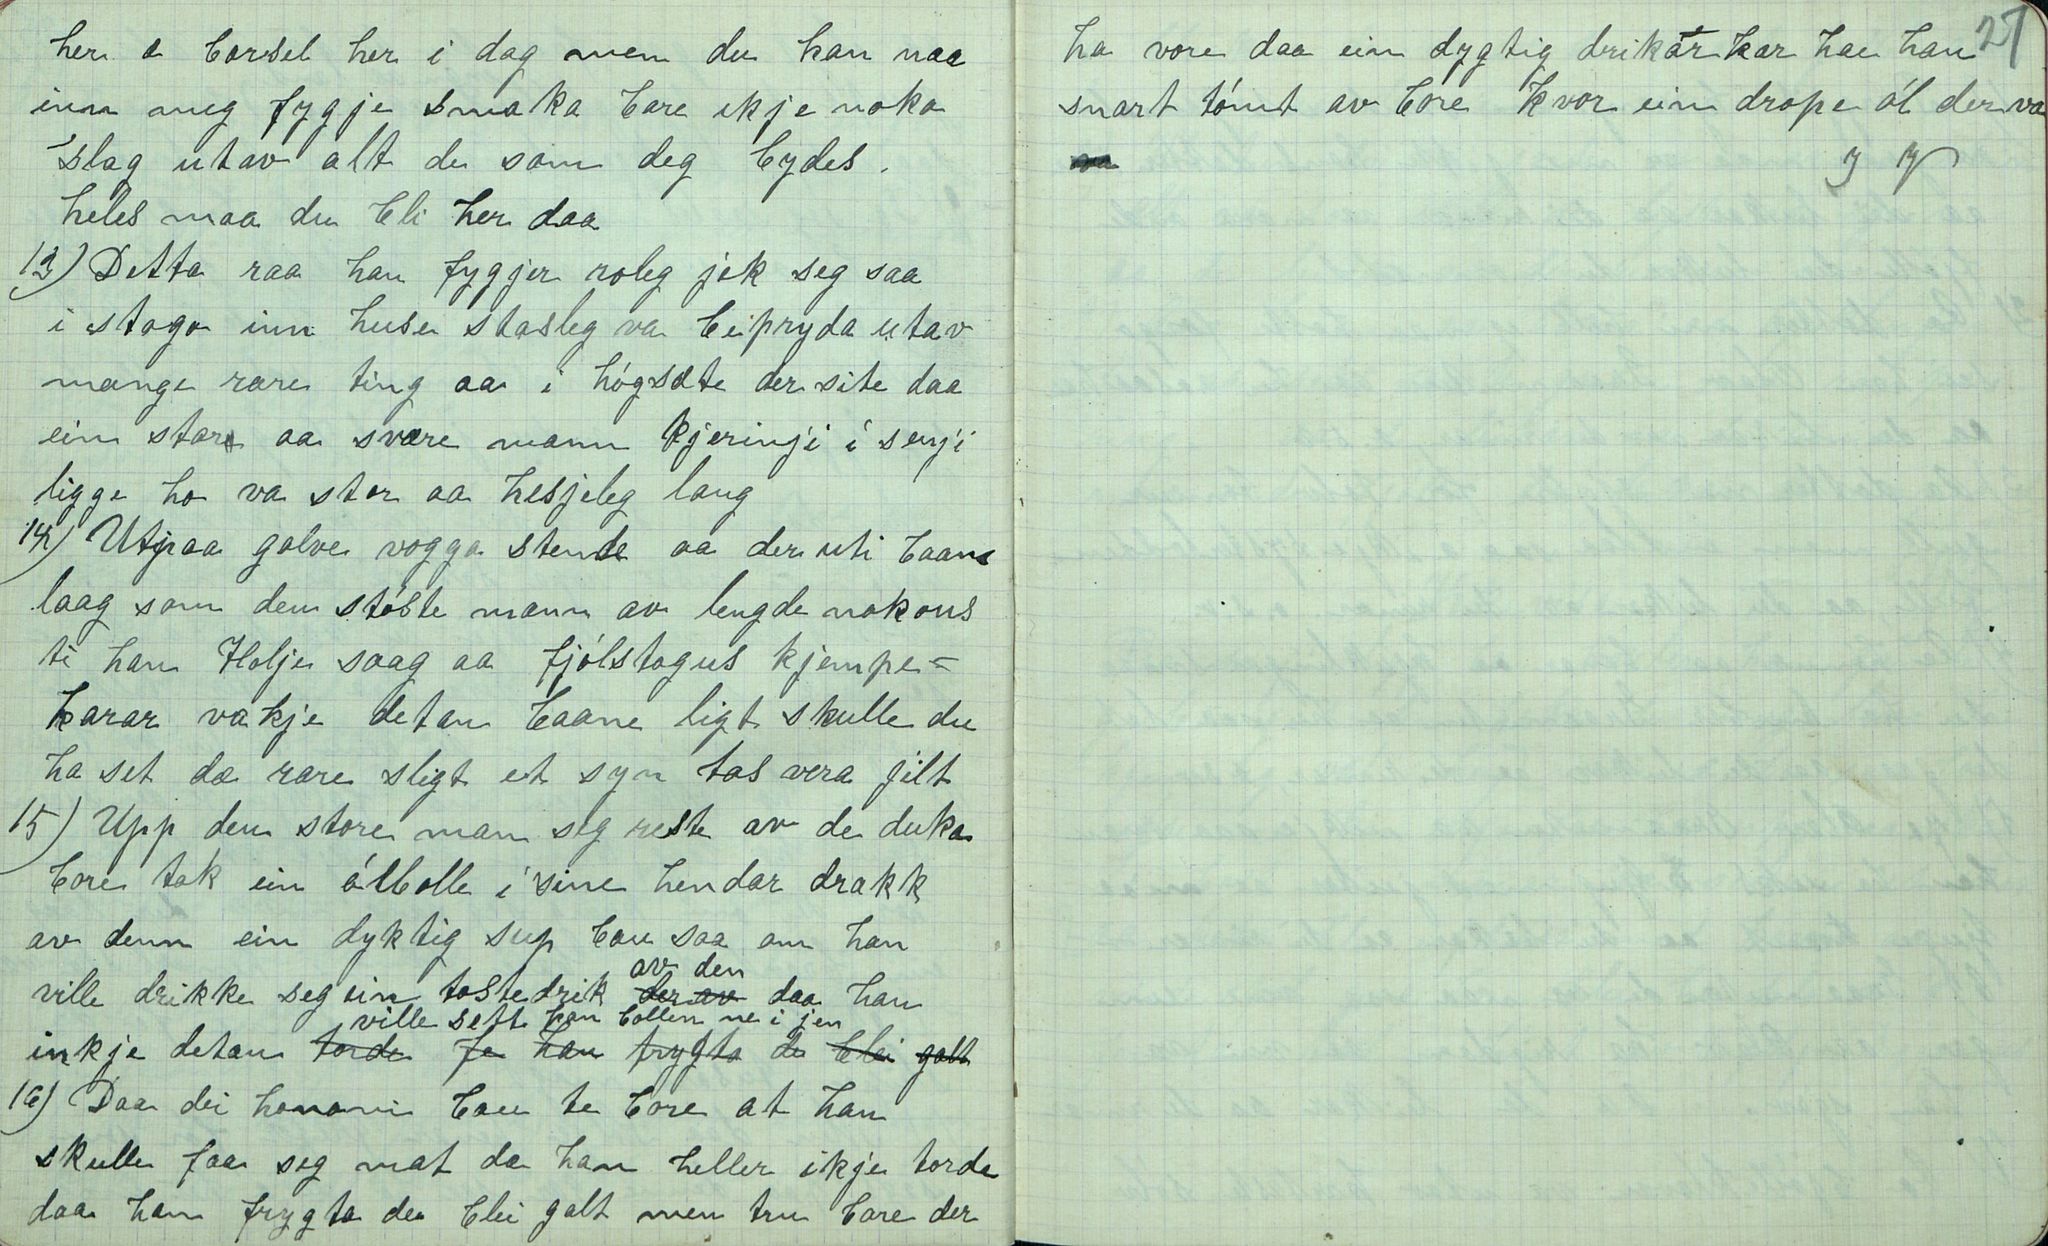 her e barsel her i dag men du kan naa
inn meg fygje smaka bare ikje noko
slag utav alt de som deg bydes.
heles maa du bli her daa
13) Detta raa han fygjer roleg jek seg saa
i stogo inn huse stasleg va beipryda utav
mange rare ting aa i högsæte der site daa
ein store aa svære mann kjeringji i sengji
ligge ho va stor aa hesjeleg lang
14) Utpaa golve vogga stende aa der uti baane
laag som den störste mann av lengde nokons
ti han Holje saag aa fjölstogus kjempe-
karar vakje detan baane ligt skulle du
ha set dæ rare sligt et syn tas vera jilt
15) Upp den store man seg reste av de duka
bore tok ein ölbolle i sine hendar drakk
av denn ein dyktig sup bau saa om han
ville drikke seg ein tostedrik der av av den daa han
inkje detan torde ville sett han bollen ne i jen
fe han frygta de blei galt
16) Daa dei honom bau te bore at han
skulle faa seg mat da han heller ikje torde
daa han frygta de blei galt men tru bare der
27
ha vore daa ein dygtig drikar kar hae han
snart tömt av bore kvor ein drope öl der va
va